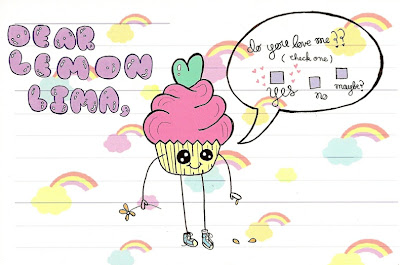 DEAR
LEMON
LIMA,
do you love me??
(check one)
yes
no
maybe?